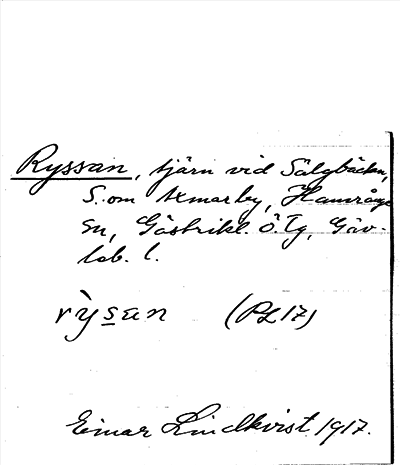 Ryssan, tjärn vid Sälgbäcken,
S. om Axmarby, Hamrånge
sn, Gästrikl. ö. Tg, Gäv-
leb. l.
rỳsan (PL 17)
Einar Lindkvist 1917.